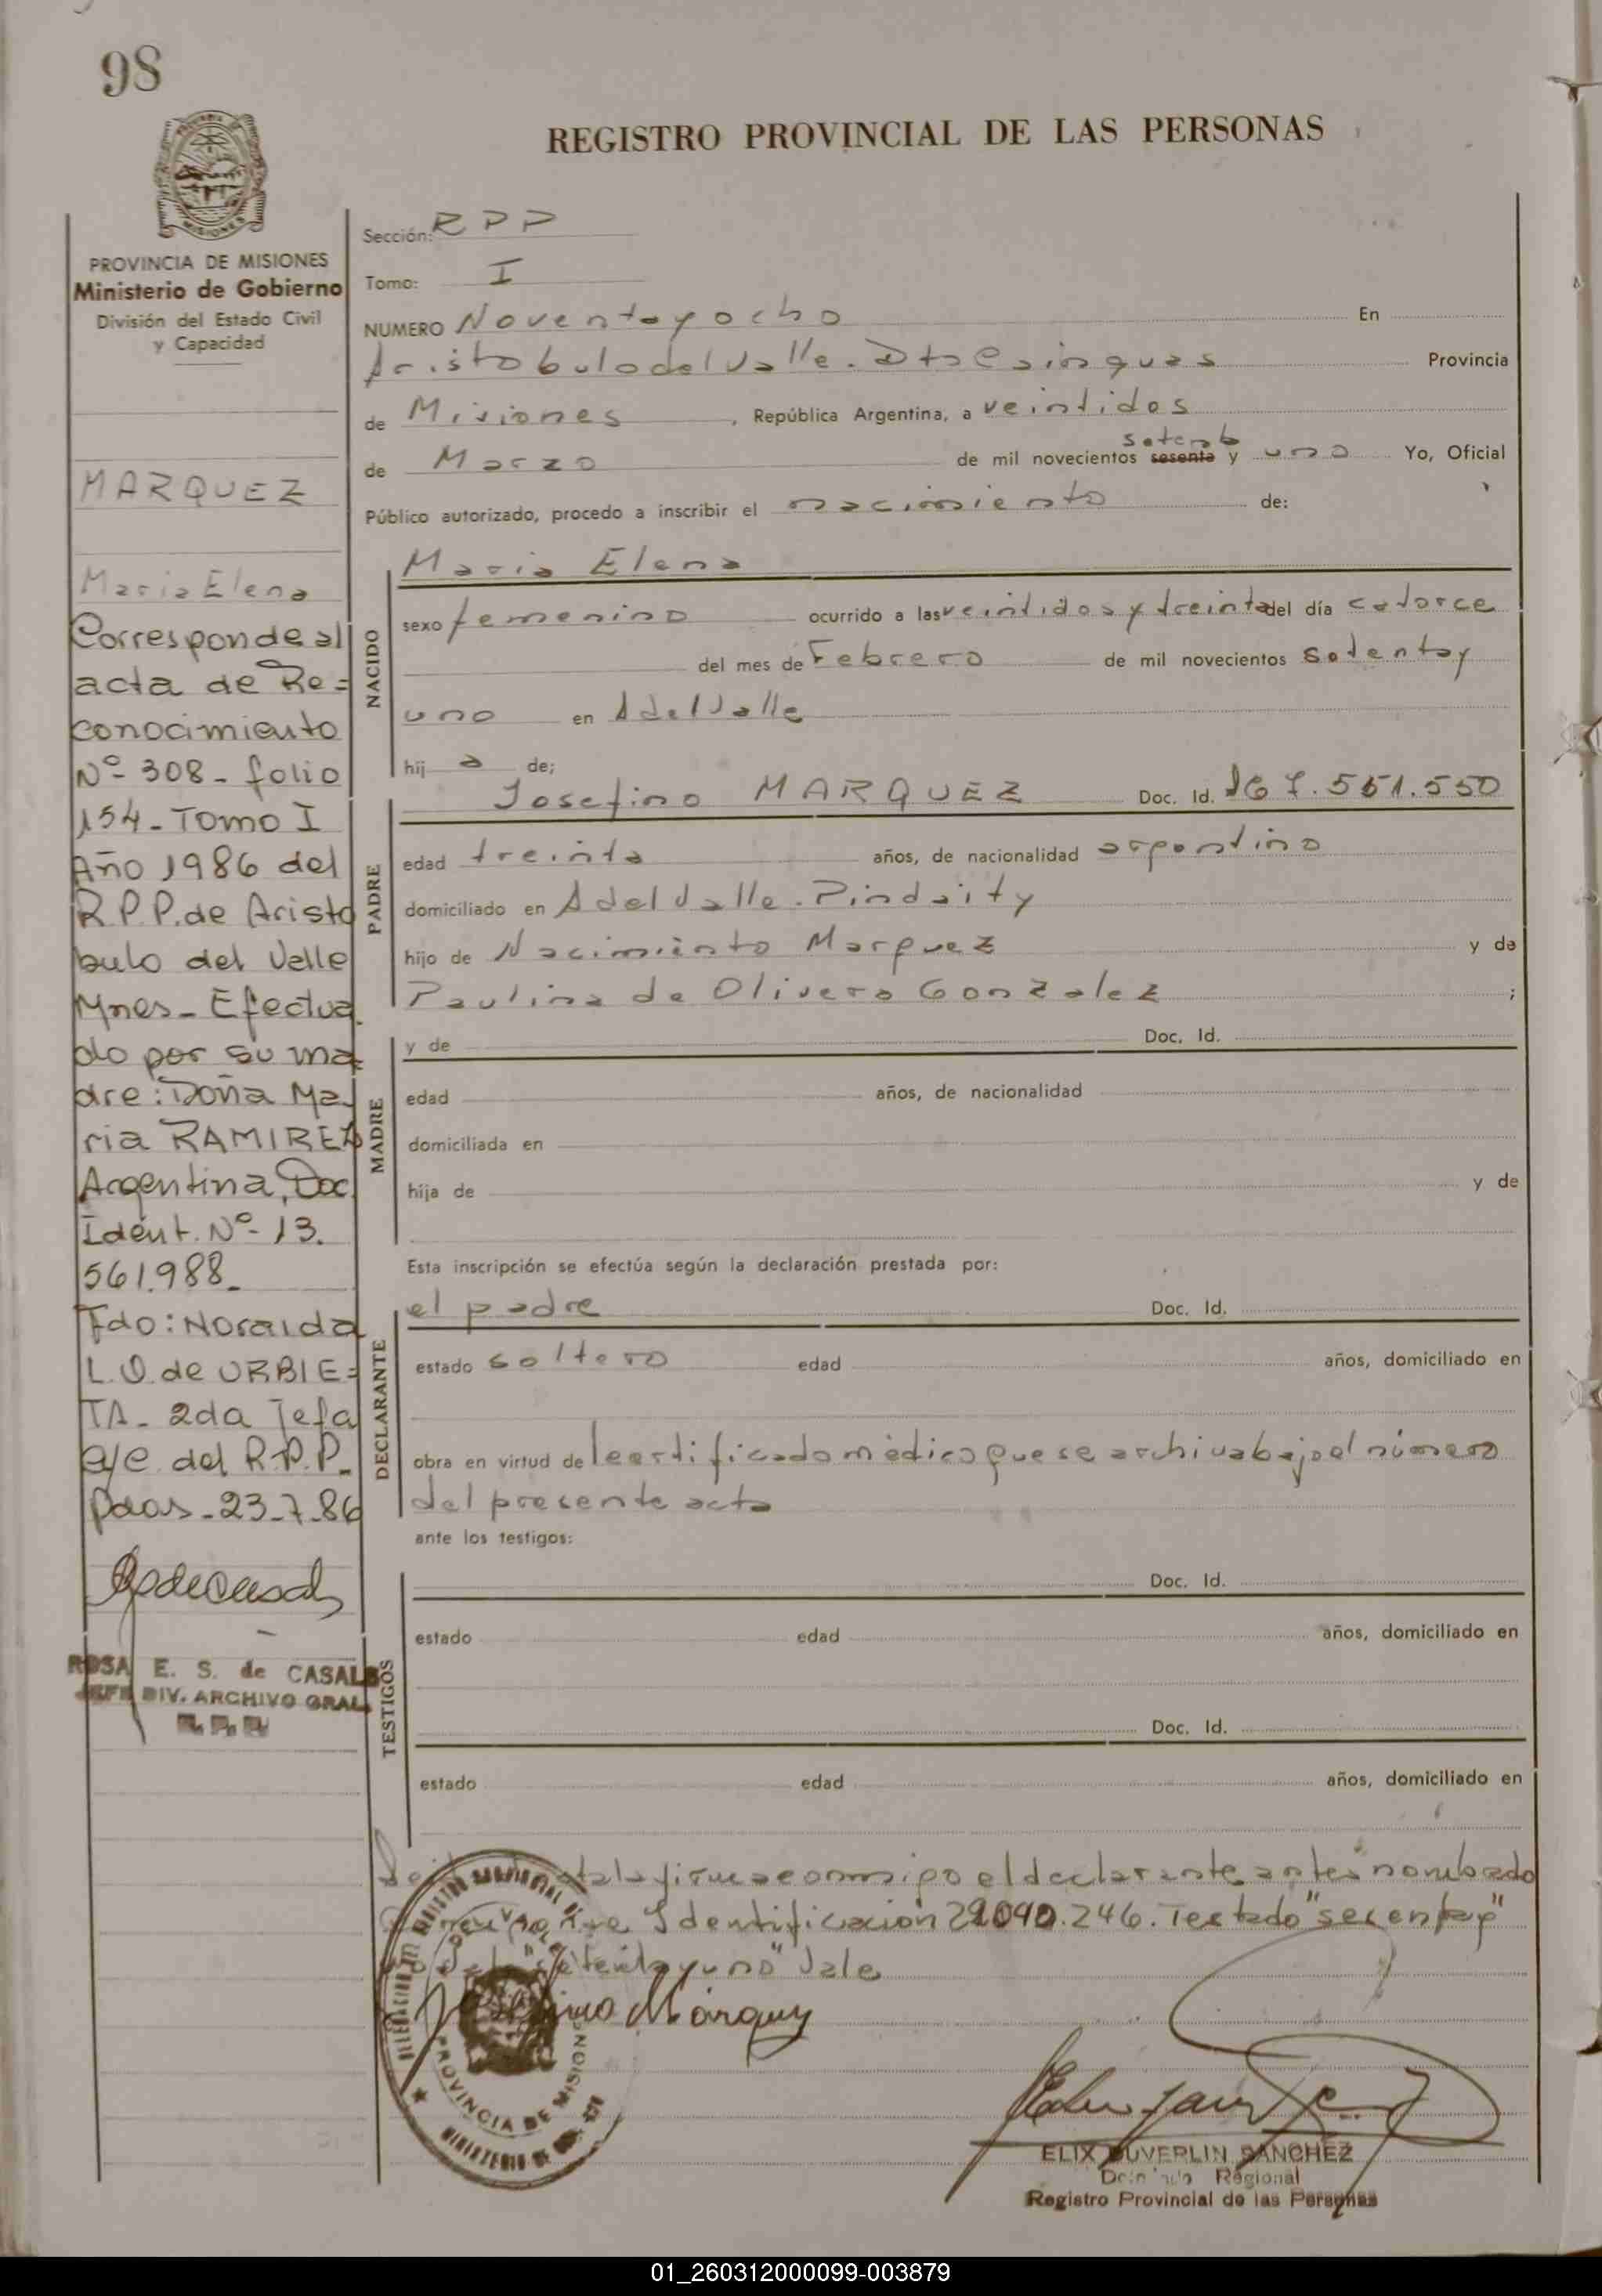 98
REGISTRO PROVINCIAL DE LAS PERSONAS
MISIONES
PROVINCIA DE MISIONES
Ministerio de Gobierno
División del Estado Civil
y Capacidad
MARQUEZ
Maria Elena
Corresponde al
acta de Re=
conocimiento
Nº 308 - folio
154 - Tomo I
Año 1986 del
R.P.P. de Aristo
bulo del Valle
Mnes - Efectua
do por su ma
dre: Doña Ma
ria RAMIREZ
Argentina, Doc.
Ident. Nº 13.
561.988.
Fdo: Noraida
L.O. de URBIE=
TA - 2da Jefa
a/c del R.P.P.
Pdas - 23-7-86
ROSA E. S. de CASALS
JEFE DIV. ARCHIVO GRAL.
R.P.P.
Sección: RPP
Tomo: I
NUMERO Noventa y ocho En
Aristobulo del Valle. Dto Cainguas Provincia
de Misiones, República Argentina, a veintidos
setenta
de Marzo de mil novecientos sesenta y uno Yo, Oficial
Público autorizado, procedo a inscribir el nacimiento de:
NACIDO
Maria Elena
sexo femenino ocurrido a las veintidos y treinta del día catorce
del mes de Febrero de mil novecientos setenta y
uno en A del Valle
hij a de;
PADRE
Josefino MARQUEZ Doc. Id. 7.551.550
edad treinta años, de nacionalidad argentino
domiciliado en A del Valle. Pindaity
hijo de Nacimiento Marquez y de
Paulina de Olivera Gonzalez ;
MADRE
y de Doc. Id.
edad años, de nacionalidad
domiciliada en
hija de y de
Esta inscripción se efectúa según la declaración prestada por:
DECLARANTE
el padre Doc. Id.
estado soltero edad años, domiciliado en
obra en virtud de certificado médico que se archiva bajo el número
del presente acta
ante los testigos:
TESTIGOS
Doc. Id.
estado edad años, domiciliado en
Doc. Id.
estado edad años, domiciliado en
la firma conmigo el declarante antes nombrado
Identificación .246. Testado "sesenta y"
"setenta y uno" Vale
Josefino Márquez
PROVINCIA DE MISIONES
MINISTERIO DE
ELIX DUVERLIN SANCHEZ
Delegado Regional
Registro Provincial de las Personas
01_260312000099-003879